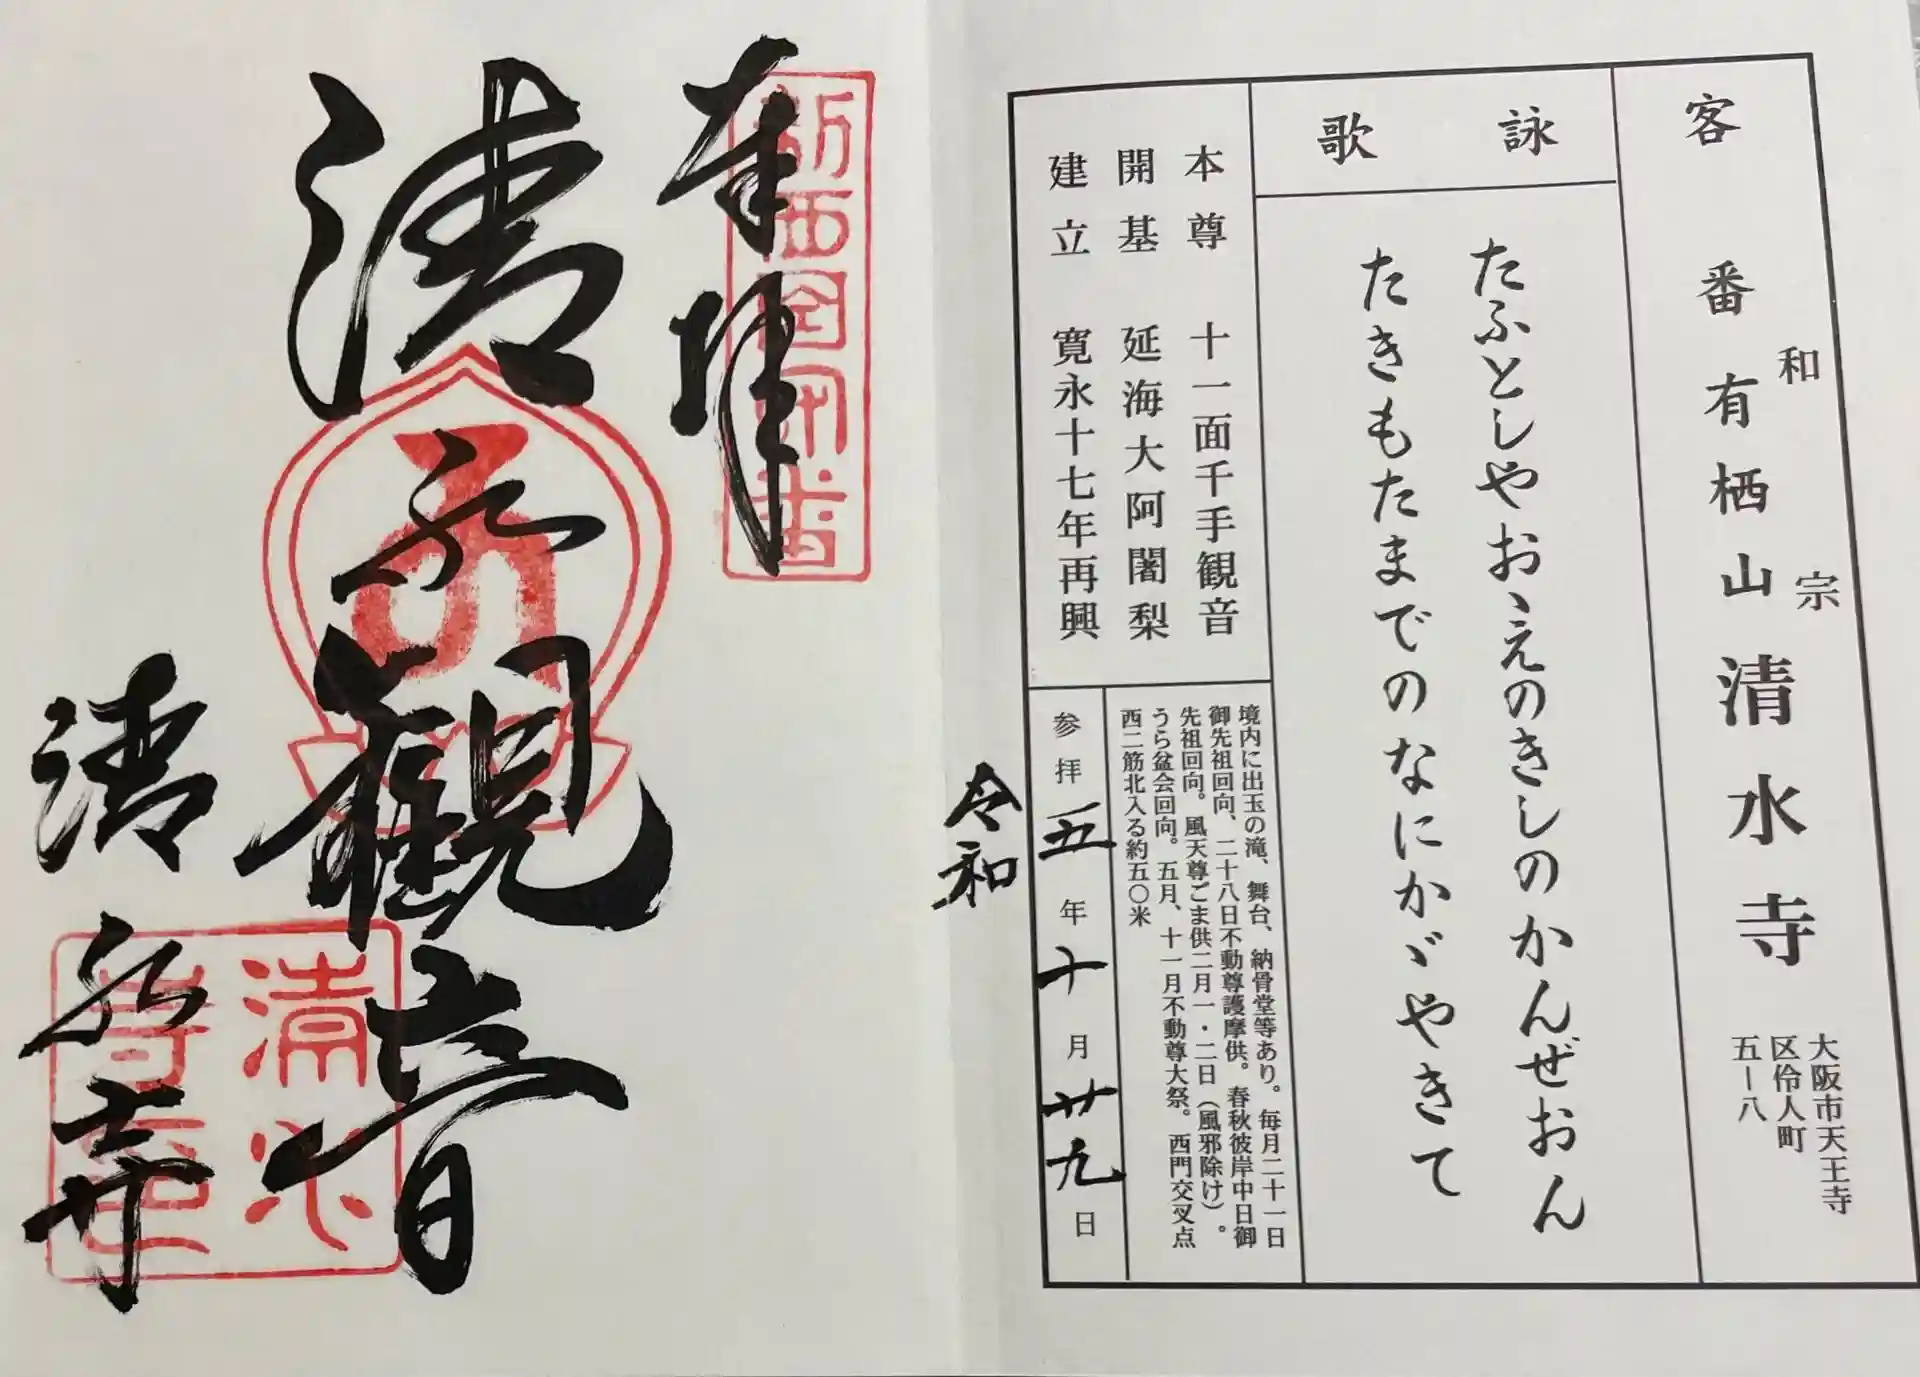 客番
和宗
有栖山清水寺
大阪市天王寺
区伶人町
五ー八
詠歌
たふとしやおゝえのきしのかんぜおん
たきもたまでのなにかゞやきて
本尊 十一面千手観音
開基 延海大阿闍梨
建立 寛永十七年再興
境内に出玉の滝、舞台、納骨堂等あり。毎月二十一日
御先祖回向、二十八日不動尊護摩供。春秋彼岸中日御
先祖回向。風天尊ごま供二月一・二日(風邪除け)。
うら盆会回向。五月、十一月不動尊大祭。西門交叉点
西二筋北入る約五〇米
参拝五年十月廿九日
令和
奉拝
新西国客番
清水観音
清水寺
清水寺印